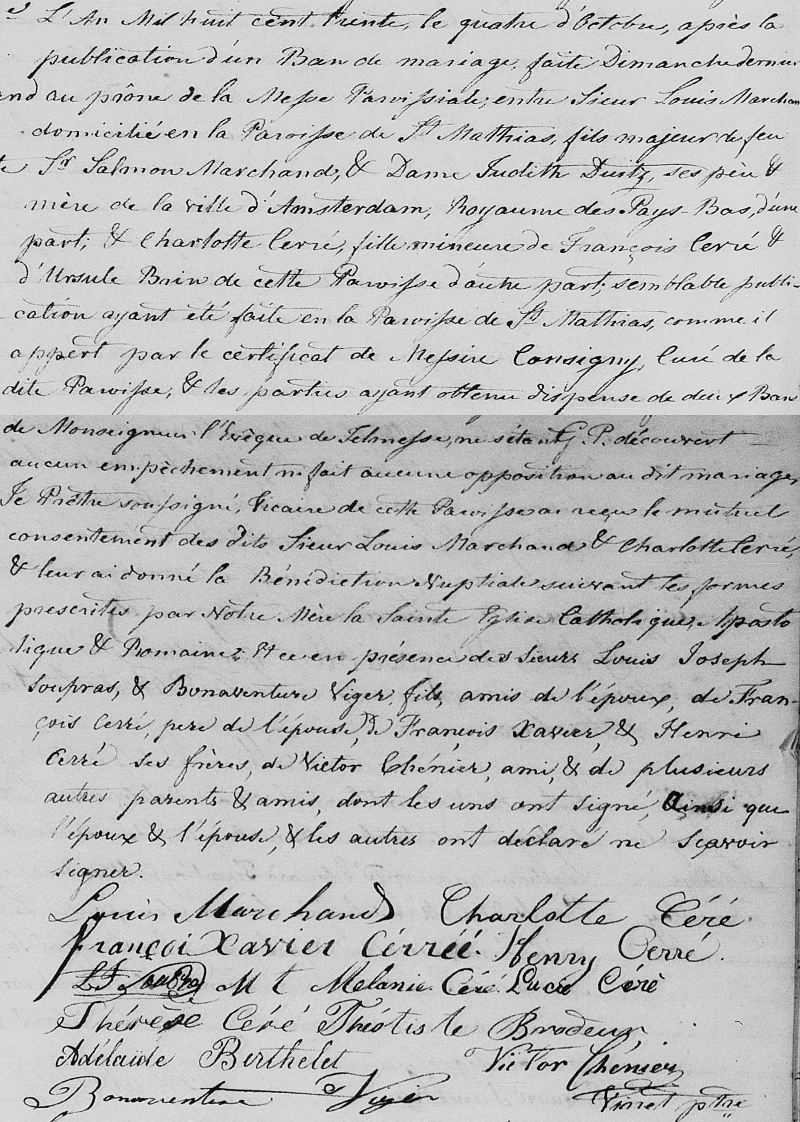 L'An Mil huit cent trente, le quatre d'Octobre, après la
publication d'un Ban de mariage, faite Dimanche dernier
au prône de la Messe Paroissiale; entre Sieur Louis Marchand
domicilié en la Paroisse de St Mathias, fils majeur de feu
Sr Salmon Marchand, & Dame Judith ses père &
mère de la ville d'Amsterdam, Royaume des Pays-Bas, d'une
part; & Charlotte Cerré, fille mineure de François Cerré &
d'Ursule Brin de cette Paroisse d'autre part; semblable publi-
cation ayant été faite en la Paroisse de St Mathias, comme il
appert par le certificat de Messire Consigny, Curé de la
dite Paroisse, & les parties ayant obtenu dispense de deux Bans
de Monseigneur l'Evêque de Telmesse, ne s'étant G. P. découvert
aucun empêchement ni fait aucune opposition au dit mariage,
Je Prêtre soussigné, Vicaire de cette Paroisse ai reçu le mutuel
consentement des dits Sieur Louis Marchand & Charlotte Cerré,
& leur ai donné la Bénédiction Nuptiale suivant les formes
prescrites par Notre Mère la Sainte Eglise Catholique, Aposto
lique & Romaine; Et ce en présence des Sieurs Louis Joseph
Soupras, & Bonaventure Viger, fils, amis de l'époux, de Fran-
çois Cerré, pere de l'épouse, de François Xavier, & Henri
Cerré ses frères, de Victor Chénier, ami, & de plusieurs
autres parents & amis, dont les uns ont signé, Ainsi que
l'époux & l'épouse, & les autres ont déclaré ne sçavoir
signer.
Louis Marchand Charlotte Céré
françoi Xavier Cérréé. Henry Cerré.
L J Soupras M t Melanie Céré Lucie Céré
Thérèse Céré Théotiste Brodeur
Adélaide Berthelet Victor Chénier
Bonaventure Viger Vinet ptre